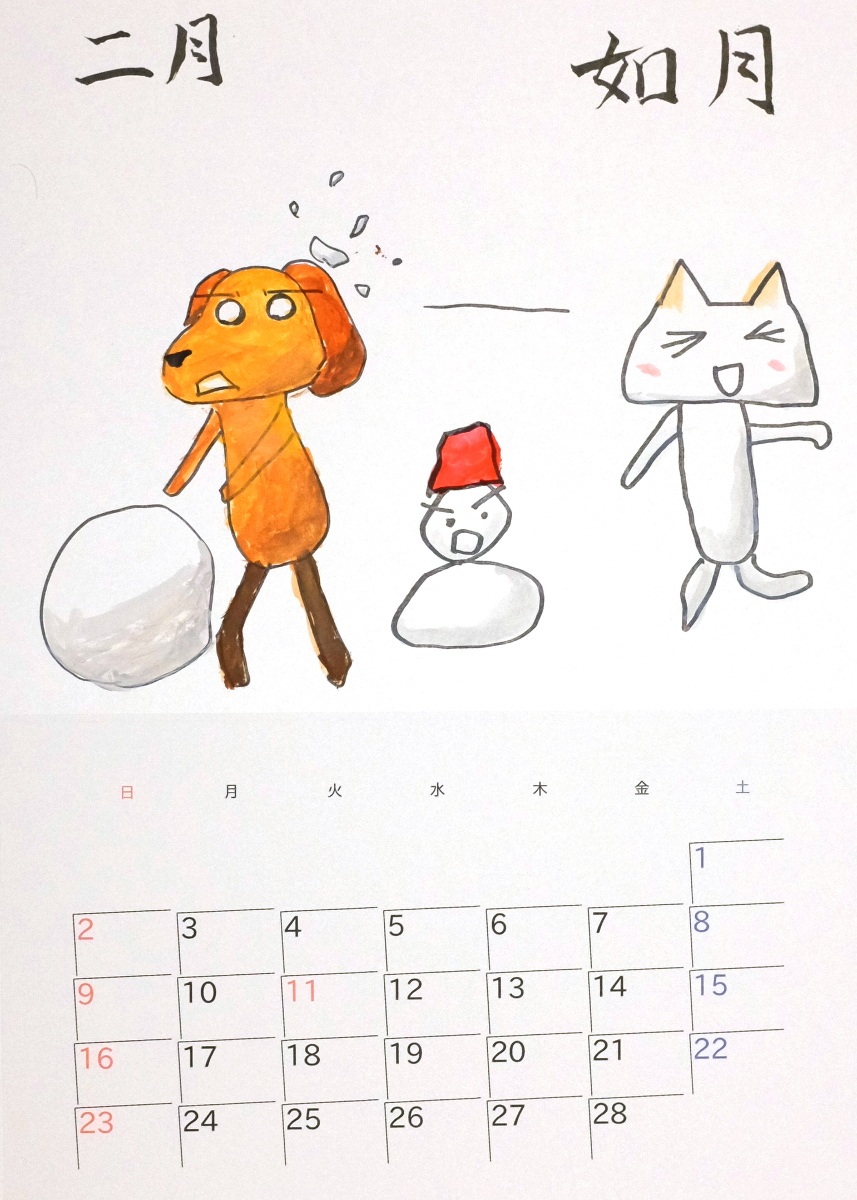 二月
如月
日 月 火 水 木 金 土
1
2 3 4 5 6 7 8
9 10 11 12 13 14 15
16 17 18 19 20 21 22
23 24 25 26 27 28